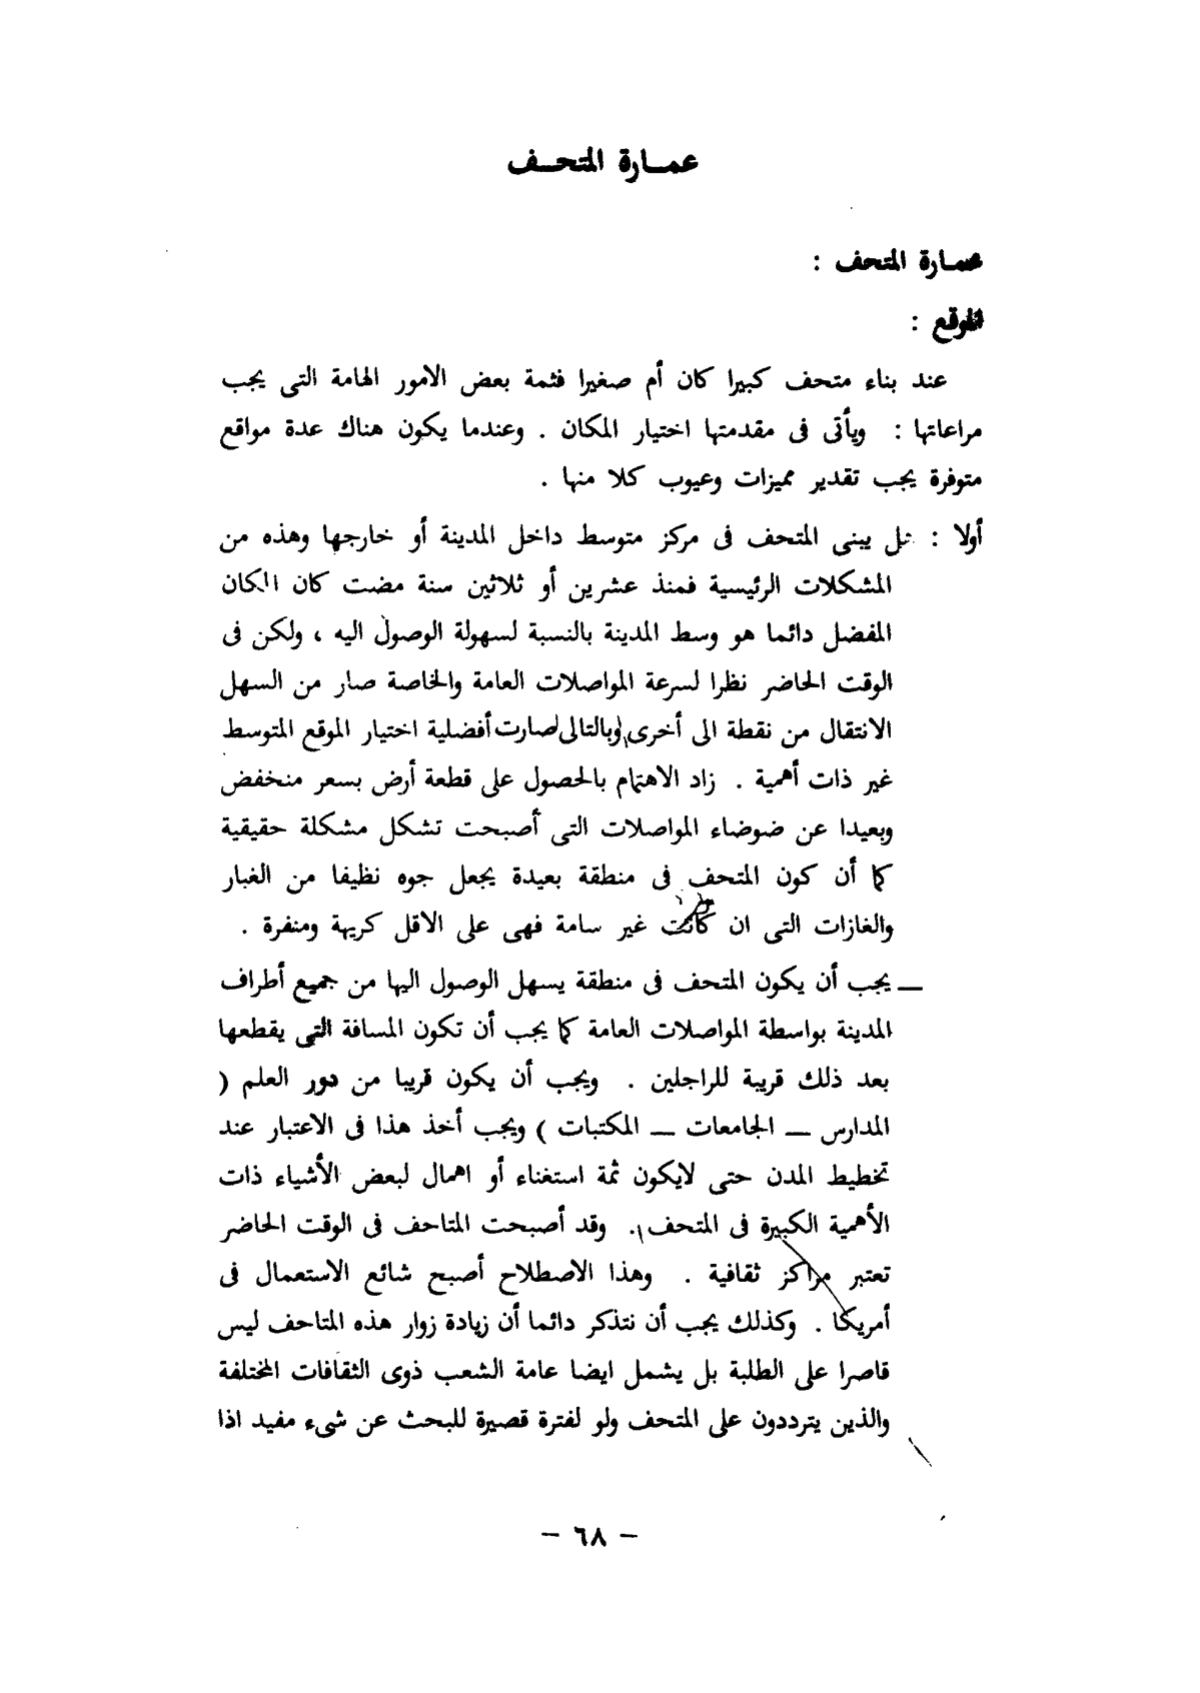 عمـارة المتحـف
عمـارة المتحف :
الموقع :
عند بناء متحف كبيرا كان أم صغيرا فثمة بعض الامور الهامة التى يجب
مراعاتها : ويأتى فى مقدمتها اختيار المكان . وعندما يكون هناك عدة مواقع
متوفرة يجب تقدير مميزات وعيوب كلا منها .
أولا : هل يبنى المتحف فى مركز متوسط داخل المدينة أو خارجها وهذه من
المشكلات الرئيسية فمنذ عشرين أو ثلاثين سنة مضت كان المكان
المفضل دائما هو وسط المدينة بالنسبة لسهولة الوصول اليه ، ولكن فى
الوقت الحاضر نظرا لسرعة المواصلات العامة والخاصة صار من السهل
الانتقال من نقطة الى أخرى وبالتالى صارت أفضلية اختيار الموقع المتوسط
غير ذات أهمية . زاد الاهتمام بالحصول على قطعة أرض بسعر منخفض
وبعيدا عن ضوضاء المواصلات التى أصبحت تشكل مشكلة حقيقية
كما أن كون المتحف فى منطقة بعيدة يجعل جوه نظيفا من الغبار
والغازات التى ان كانت غير سامة فهى على الاقل كريهة ومنفرة .
ـ يجب أن يكون المتحف فى منطقة يسهل الوصول اليها من جميع أطراف
المدينة بواسطة المواصلات العامة كما يجب أن تكون المسافة التى يقطعها
بعد ذلك قريبة للراجلين . ويجب أن يكون قريبا من دور العلم (
المدارس ـ الجامعات ـ المكتبات ) ويجب أخذ هذا فى الاعتبار عند
تخطيط المدن حتى لايكون ثمة استغناء أو اهمال لبعض الأشياء ذات
الأهمية الكبيرة فى المتحف . وقد أصبحت المتاحف فى الوقت الحاضر
تعتبر مراكز ثقافية . وهذا الاصطلاح أصبح شائع الاستعمال فى
أمريكا . وكذلك يجب أن نتذكر دائما أن زيادة زوار هذه المتاحف ليس
قاصرا على الطلبة بل يشمل ايضا عامة الشعب ذوى الثقافات المختلفة
والذين يترددون على المتحف ولو لفترة قصيرة للبحث عن شىء مفيد اذا
- ٦٨ -